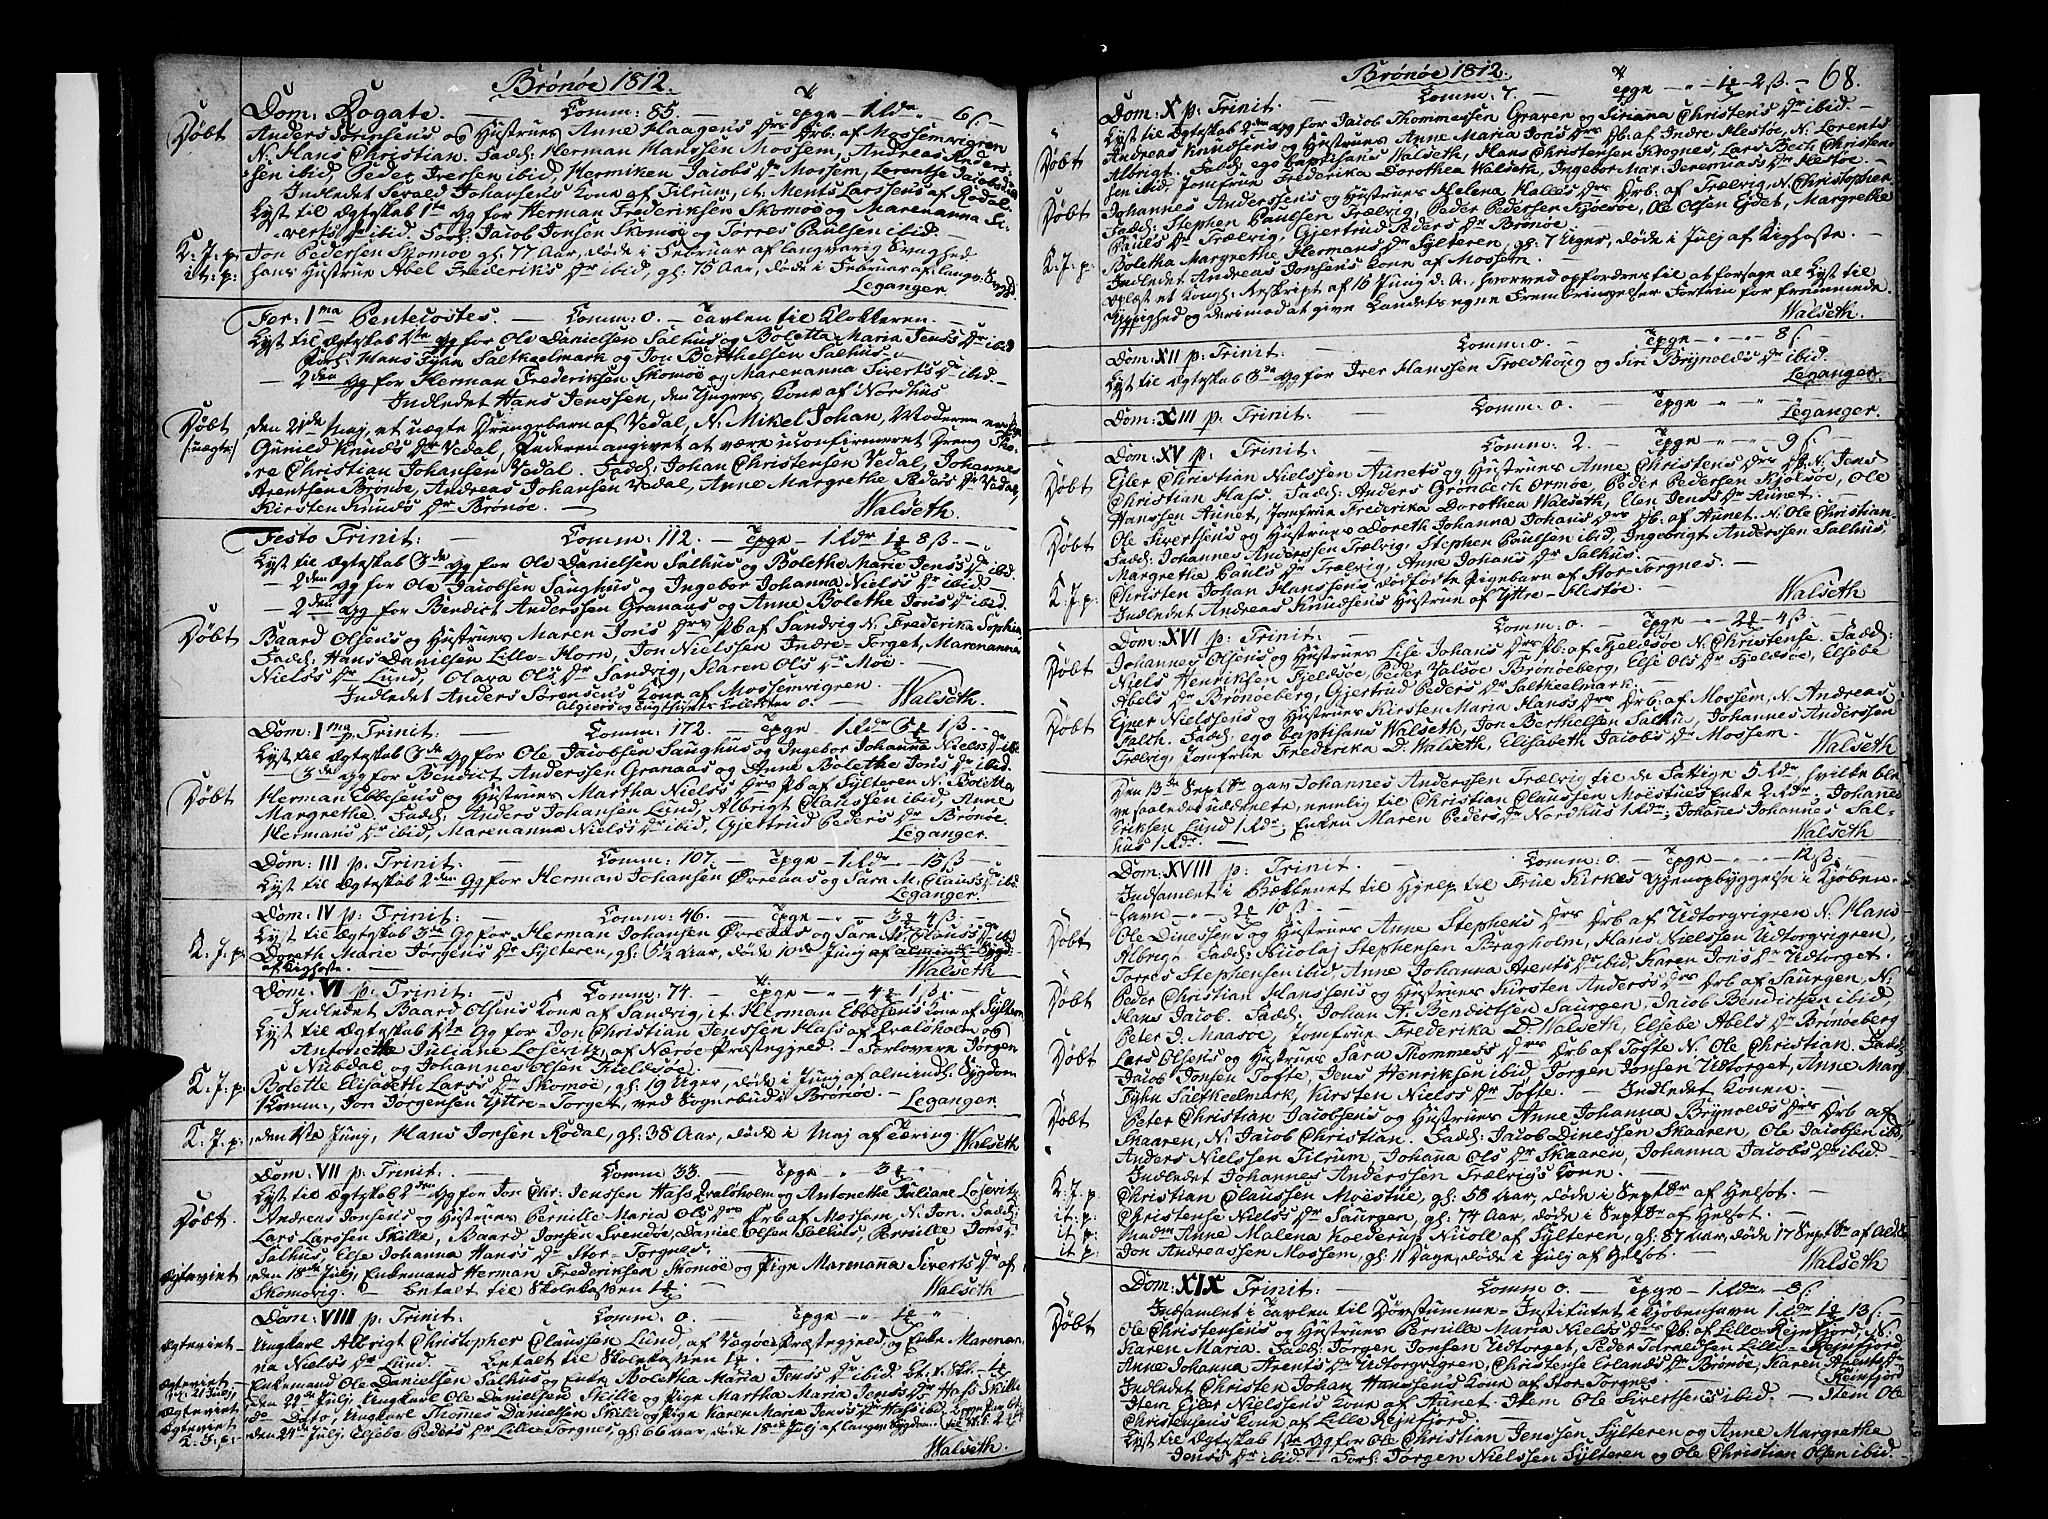 Brønøe 1812.
Dom: Rogate. Comm: 85. Tpge 1 Rdr 6 ß
Døbt Anders Sørensens og Hustrues Anne Haagens Drs Drb. af Mossemvigren
N. Hans Christian. Fadd: Herman Hanssen Mossem, Andreas Anders-
sen ibid, Peder Iversen ibid, Hermiken Jacobs Dr Mossem, Lorentse Jacobs Dr
Indledet Sivald Johansens Kone af Tilrum, it. Ments Larssens af Rodal.
Lyst til Ægteskab 1ste Gg for Herman Frederiksen Skomoe og Marenanna Si-
verts Dr ibid. Forl: Jacob Jonsen Skomoe og Torres Paulsen ibid.
K. J. p: Jon Pedersen Skomoe gl: 77 Aar, døde i Februar af langvarig Svaghed
it: p: hans Hustrue Abel Frederiks Dr ibid, gl: 75 Aar, døde i Februar af langv: Svagh.
Leganger.
Fer: 1ma Pentecostes. Comm: 0. Tavlen til Klokkeren.
Lyst til Ægteskab 1ste Gg for Ole Danielsen Salhus og Boletta Maria Jens's Dr ibid
Forl: Hans Fyhn Saltkeelmark og Jon Berthelsen Salhus.
2den Gg for Herman Frederiksen Skomoe og Marenanna Siverts Dr ibid.
Indledet Hans Jenssen, den Yngres, Kone af Nordhus
Døbt den 21de Maj, et uægte Drengebarn af Vedal, N. Mikel Johan, Moderen er
/:uægte:/ Gunild Knuds Dr Vedal, Faderen angivet at være uconfirmeret Dreng
Christian Johansen Vedal. Fadd: Johan Christensen Vedal, Johannes
Arentsen Brønøe, Andreas Johansen Vedal, Anne Margrethe Peders Dr Vedal,
Kirsten Knuds Dr Brønøe. Walseth.
Festo Trinit: Comm: 112. Tpge 1 Rdr 1 8 ß
Lyst til Ægteskab 3de Gg for Ole Danielsen Salhus og Bolethe Marie Jens's Dr ibid.
2den Gg for Ole Jacobsen Saughus og Ingebor Johanna Niels's Dr ibid
2den Gg for Bendict Anderssen Granaas og Anne Bolethe Jons Dr ibid.
Døbt Baard Olsens og Hustrues Maren Jons Drs Pb af Sandvig N. Frederika Sophia
Fadd: Hans Danielsen Lille-Horn, Jon Nielssen Indre-Torget, Marenanna
Niels's Dr Lund, Olava Ols Dr Sandvig, Karen Ols Dr Moe.
Indledet Anders Sørensens Kone af Mossemvigren. Walseth.
Dom: 1ma p. Trinit: Comm: 172. Tpge 1 Rdr 5 1 ß
Lyst til Ægteskab 3de Gg for Ole Jacobsen Saughus og Ingebor Johanna Niels's Dr ib.
3de Gg for Bendict Anderssen Granaas og Anne Bolethe Jons Dr ibid.
Døbt Herman Ebbesens og Hustrues Martha Niels's Drs Pb af Sylteren N. Boletha
Margrethe. Fadd: Anders Johansen Lund, Albrigt Claussen ibid, Anne
Hermans Dr ibid, Marenanna Niels's Dr ibid, Gjertrud Peders Dr Brønøe.
Leganger.
Dom: III p: Trinit: Comm: 107. Tpge 1 Rdr 13 ß
Lyst til Ægteskab 2den Gg for Herman Johansen Ørreaas og Sara M. Claus's Dr ibid
Leganger.
Dom: IV p: Trinit: Comm: 46. Tpge 3 4 ß
Lyst til Ægteskab 3de Gg for Herman Johansen Ørreaas og Sara M. Claus's Dr ibid
K. J. p: Doreth Marie Jørgens Dr Sylteren, gl: 6½ Aar, døde 10de Junj af
af Kighoste. Walseth
Dom: VI p: Trinit: Comm: 74. Tpge 4 1 ß
Indledet Baard Olsens Kone af Sandvig, it. Herman Ebbesens Kone af Syltern
Lyst til Ægteskab 1ste Gg for Jon Christian Jenssen Hass af Qvalöholm og
Antonette Juliane Loseviz, af Nærøe Præstegjeld. Forlovere Jørgen
Nubdal og Johannes Olsen Fieldsøe.
K. J. p: Bolette Elisabeth Lars's Dr Skomoe, gl: 19 Uger, døde i Junj af almindl: Sygdom
1 Komm:, Jon Jørgensen Yttre-Torget, ved Sognebud i Brønøe. Leganger.
K. J. p: den Junj, Hans Jonsen Rodal, gl: 38 Aar, døde i Maj af Tæring Walseth
Dom: VII p: Trinit: Comm 33. Tpge 3
Lyst til Ægteskab 2den Gg for Jon Chr: Jenssen Hass Qvalöholm og Antonette Juliane Loseviz
Døbt. Andreas Jonsens og Hustrues Pernille Maria Ols Drs Drb af Mossem, N. Jon. Fadd:
Lars Larssen Skille, Baard Jonsen Svendøe, Daniel Olsen Salhus, Pernille Jons Dr
Salhus, Else Johanna Hans's Dr Stor-Torgnes.
Ægteviet den 18de Julj, Enkemand Herman Frederiksen Skomoe og Pige Marenanna Siverts Dr af
Skomovig. Betalt til Skolekassen 1 Walseth
Dom: VIII p: Trinit: Comm: 0. Tpge 1
Ægteviet Ungkarl Albrigt Christopher Claussen Lund, af Vegøe Præstegjeld, og Enke Marenan-
na Niels's Dr Lund. Betalt til Skolekassen
Ægteviet Enkemand Ole Danielsen Salhus og Enke Boletha Maria Jens's Dr ibid.
Ægteviet den 21de Julj Ungkarl Ole Danielsen Skille og Pige Martha Maria Jens's Dr Hass Skille
Ægteviet Dato, Ungkarl Thomes Danielsen Skille og Pige Karen Marie Jens's Dr Hass ibid.
K. J. p: den 24de Julj Elsebe Peders Dr Lille-Torgnes, gl: 66 Aar, døde 18de Julj af langv: Sygdom.
Walseth
Brønøe 1812. 68.
Dom: X p: Trinit. Comm: 7. Tpge 1 2 ß
Lyst til Ægteskab 2den Gg for Jacob Thommessen Graven og Siriana Christens Dr ibid.
Døbt Andreas Knudsens og Hustrues Anne Maria Jons Drs Pb. af Indre Hestøe, N. Lorents
Albrigt. Fadd: ego baptisans Walseth, Hans Christensen Krognes, Lars Bech Christen-
sen ibid, Jomfrue Frederika Dorothea Walseth, Ingebor Mar: Jeremias Dr Hestøe.
Døbt Johannes Anderssens og Hustrues Helena Halles Drs Drb: af Trælvig, N. Christopher.
Fadd: Stephen Paulsen Trælvig, Peder Pedersen Kjølsøe, Ole Olsen Ejdet, Margrethe
Pauls Dr Trælvig, Gjertrud Peders Dr Brønøe
K. J. p: Boletha Margrethe Hermans Dr Sylteren, gl: 7 Uger, døde i Julj af Kighoste.
Indledet Andreas Jonsens Kone af Mossem.
Oplæst et Kongl: Reskript af 16 Junj d. A., hvorved opfordres til at forsage al Lyst til
Yppighed og derimod at give Landets egne Frembringelser Fortrin for fremmede.
Walseth.
Dom: XII p: Trinit: Comm: 0. Tpge 8 ß
Lyst til Ægteskab 3de Gg for Iver Hanssen Troldhoug og Siri Brynolds Dr ibid.
Leganger.
Dom: XIII p: Trinit: Comm: 0. Tpge Leganger.
Dom: XV p: Trinit: Comm: 2. Tpge 9 ß
Døbt Ejler Christian Nielssen Aunets og Hustrues Anne Christens Drs Db. N. Jens
Christian Hass. Fadd: Anders Grönbech Ormøe, Peder Pedersen Kjølsøe, Ole
Hanssen Aunet, Jomfrue Frederika Dorothea Walseth, Elen Jens's Dr Aunet.
Døbt Ole Sivertsens og Hustrues Doreth Johanna Johans Drs Db: af Aunet. N. Ole Christian.
Fadd: Johannes Anderssen Trælvig, Stephen Paulsen ibid, Ingebrigt Anderssen Salhus,
Margrethe Pauls Dr Trælvig, Anne Johans Dr Salhus.
K. J. p: Christen Johan Hanssens dødfødte Pigebarn af Stor-Torgnes.
Indledet Andreas Knudsens Hustrue af Yttre-Hestøe. Walseth
Dom: XVI p: Trinit: Comm: 0. Tpge 2 4 ß
Døbt Johannes Olsens og Hustrues Lise Johans Drs Pb: af Fjeldsøe N. Christense. Fadd:
Niels Henriksen Fjeldsøe, Peder Valsøe Brønøeberg, Else Ols Dr Fjeldsøe, Elsebe
Abels Dr Brønøeberg, Gjertrud Peders Dr Saltkeelmark.
Døbt Ejner Nielssens og Hustrues Kirsten Maria Hans's Drs Drb: af Mossem, N. Andreas
Falch. Fadd: ego baptisans Walseth, Jon Berthelsen Salhu, Johannes Anderssen
Trælvig, Jomfrue Frederika D. Walseth, Elisabeth Jacobs Dr Mossem.
Walseth
Den 13de Septbr gav Johannes Anderssen Trælvig til de Fattige 5 Rdr, hvilke ble-
ve saaledes uddeelte, nemlig til Christian Claussen Moestues Enke 2 Rdr, Johanes
Eriksen Lund 1 Rdr; Enken Maren Peders Dr Nordhus 1 Rdr; Johanes Johannes Sal-
hus 1 Rdr. Walseth
Dom: XVIII p: Trinit: Comm 0. Tpge 12 ß
Indsamlet i Bækkenet til Hjelp til Frue Kirkes Gjenopbyggelse i Kjøben-
havn 2 10 ß
Døbt Ole Dinessens og Hustrues Anne Stephens Drs Drb af Udtorgvigren N. Hans
Albrigt. Fadd: Nicolaj Stephensen Bragholm, Hans Nielssen Udtorgvigren,
Torres Stephensen ibid, Anne Johanna Arents Dr ibid, Karen Jons Dr Udtorget.
Døbt Peder Christian Hanssens og Hustrues Kirsten Anders's Drs Drb af Saurgen, N.
Hans Jacob. Fadd: Johan A. Bendictsen Saurgen, Jacob Bendictsen ibid,
Peter D. Maasøe, Jomfrue Frederika D. Walseth, Elsebe Abels Dr Brønøeberg
Døbt Lars Olsens og Hustrues Sara Thommes's Drs Drb af Tofte N. Ole Christian. Fadd:
Jacob Jonsen Tofte, Jens Henriksen ibid Jørgen Jonsen Udtorget, Anne Marg.
Fyhn Saltkeelmark, Kirsten Niels's Dr Tofte. Indledet Konen.
Døbt Peter Christian Jacobsens og Hustrues Anne Johanna Brynolds Drs Drb af
Skaaren, N. Jacob Christian. Fadd: Jacob Dinessen Skaaren, Ole Jacobsen ibid,
Anders Nielssen Tilrum, Johana Ols Dr Skaaren, Johanna Jacobs Dr ibid.
Indledet Johannes Anderssen Trælvigs Kone.
K. J. p. Christian Claussen Moestue, gl: 58 Aar, døde i Septbr af Helsot.
it: p: Christense Niels's Dr Saurgen, gl: 74 Aar, døde i Septbr af Helsot.
it: p: Madm Anne Malena Kolderup Nicoll af Sylteren, gl: 87 Aar, døde 17 Septbr af Alder
it p: Jon Andreassen Mossem, gl: 11 Dage, døde i Julj af Helsot. Walseth
Dom: XIX Trinit: Comm 0. Tpge 1 Rdr 8 ß
Indsamlet i Tavlen til Døvstumme-Institutet i Kjøbenhavn 1 Rdr 1 13 ß
Døbt Ole Christensens og Hustrues Pernille Maria Niels's Drs Pb. af Lille-Rejnfjord, N.
Karen Maria. Fadd: Jørgen Jonsen Udtorget, Peder Tarneldsen Lille-Rejnfjord
Anne Johanna Arents Dr Udtorgvigren, Christense Erlands Dr Brønøe, Karen Arents Dr
Reinfjord
Indledet Christen Johan Hanssens Kone af Stor-Torgnes
Item Ejler Nielssens Kone af Aunet. Item Ole Sivertsens ibid. Item Ole
Christensens Kone af Lille Rejnfjord.
Lyst til Ægteskab 1ste Gg for Ole Christian Jenssen Sylteren og Anne Margretha
Jens's Dr ibid. Forl: Jørgen Nielssen Sylteren og Ole Christian Olsen ibid.